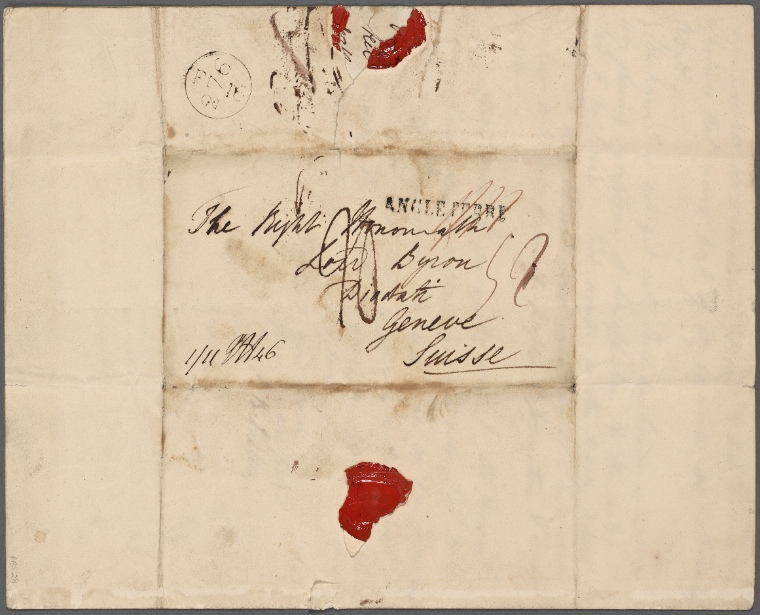 ANGLETERRE
The Right Honourable
Lord Byron
Diodati
Geneve
Suisse